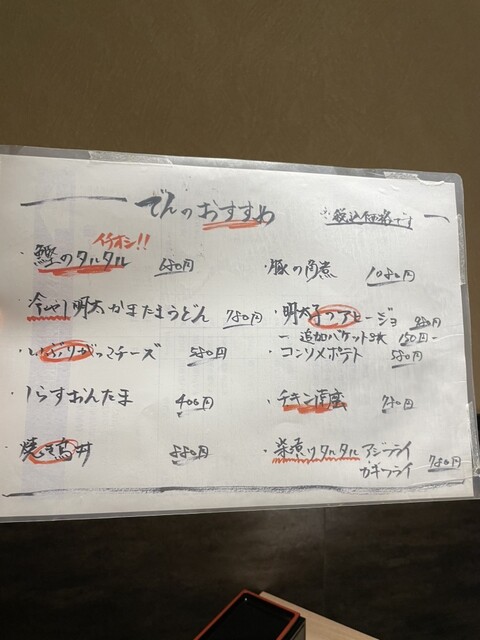 でんのおすすめ ※税込価格です
イチオシ!!
・鰹のタルタル 680円
・冷やし明太かまたまうどん 780円
・いぶりがっこチーズ 580円
・しらすおんたま 400円
・焼き鳥丼 880円
・豚の角煮 1080円
・明太子のアヒージョ 980円
ー 追加バケット5枚 150円 ー
・コンソメポテト 580円
・チキン南蛮 780円
・柴漬けタルタル アジフライ
カキフライ 780円